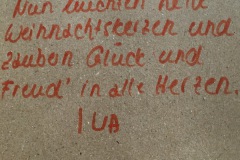 Nun leuchten
Weihnachtskerzen und
zaubern Glück und
Freud' in alle Herzen.